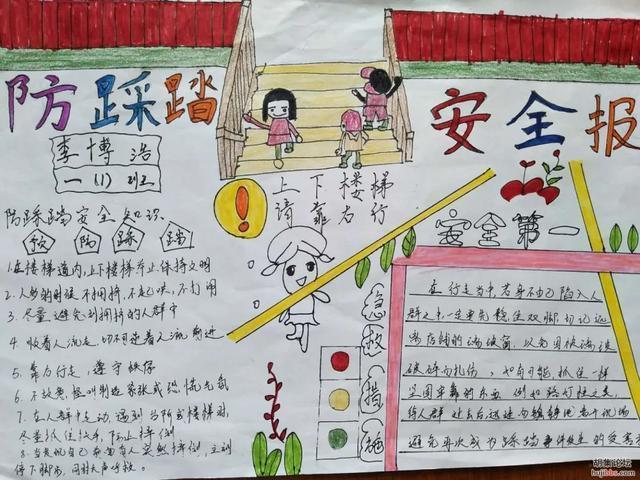 防踩踏
安全报
李博浩
一(1)班
上下楼梯
请靠右行
防踩踏安全知识
预防踩踏
1.在楼梯道内,上下楼梯举止保持文明
2.人多的时候不拥挤,不起哄、不打闹
3.尽量避免到拥挤的人群中
4.顺着人流走,切不可逆着人流前进
5.靠右行走,遵守秩序
6.不故意怪叫制造紧张或恐慌气氛
7.在人群中走动,遇到台阶或楼梯时,
尽量抓住扶手,防止摔倒
8.当发现自己前面有人突然摔倒,立刻
停下脚步,同时大声呼救。
安全第一
急救措施
在行走当中,若身不由己陷入人
群之中,一定要先稳住双脚,切记远
离店铺的玻璃窗,以免因玻璃
破碎而扎伤。如有可能,抓住一样
坚固牢靠的东西,例如路灯柱之类,
待人群过去后迅速
避免再次成为踩踏事件
胡集论坛
hujibbs.com